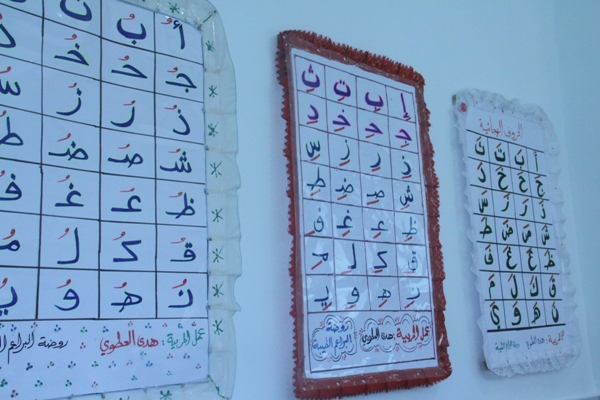 الحروف الهجائية
أَ بَ تَ ثَ
جَ حَ خَ دَ
ذَ رَ زَ سَ
شَ صَ ضَ طَ
ظَ عَ غَ فَ
قَ كَ لَ مَ
نَ هَ وَ يَ
إِ بِ تِ ثِ
جِ حِ خِ دِ
ذِ رِ زِ سِ
شِ صِ ضِ طِ
ظِ عِ غِ فِ
قِ كِ لِ مِ
نِ هِ وِ يِ
عمل المربية: هدى العطوي روضة البراعم
أُ بُ تُ
جُ حُ خُ دُ
ذُ رُ زُ سُ
شُ صُ ضُ طُ
ظُ عُ غُ فُ
قُ كُ لُ مُ
نُ هُ وُ يُ
عمل المربية: هدى العطوي روضة البراعم